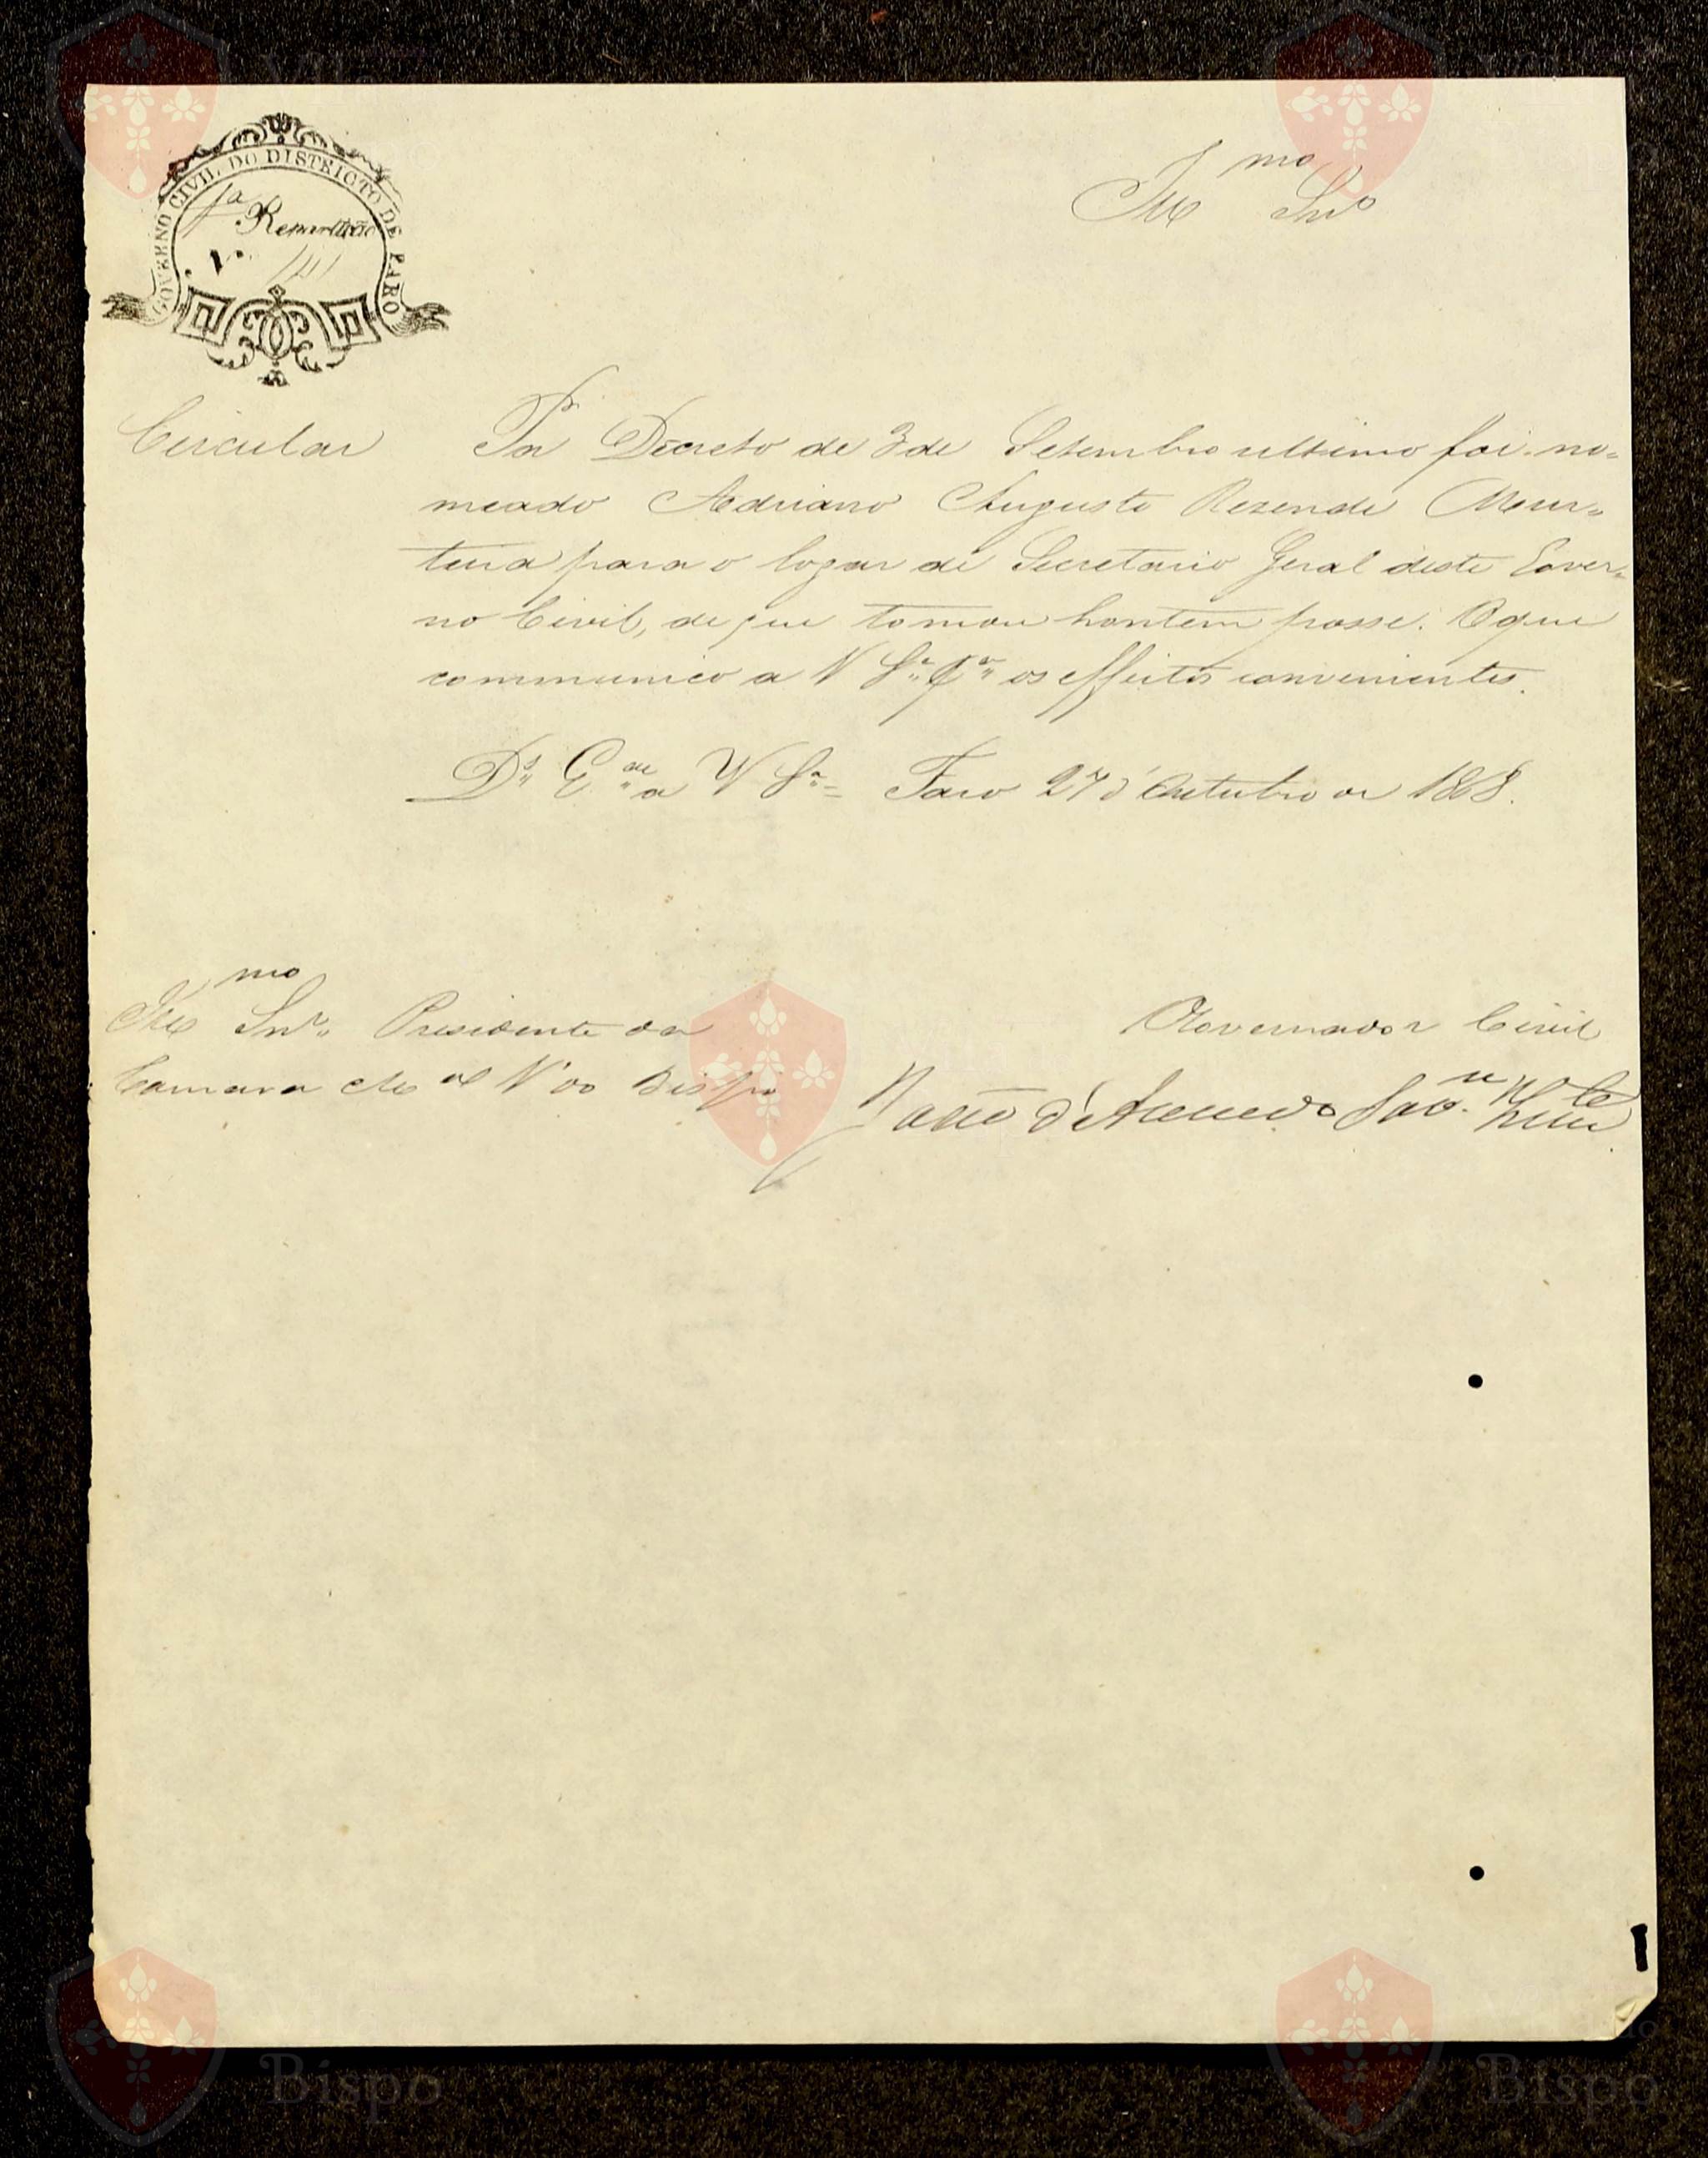 GOVERNO CIVIL DO DISTRICTO DE FARO
1ª Repartição
Nº
Illmo Snr
Circular
Por Decreto de 3 de Setembro ultimo foi no=
meado Adriano Augusto Rezende Mur=
teira para o logar de Secretario Geral deste Gover=
no Civil, de que tomou hontem posse. O que
communico a V Sª pª os effeitos convenientes.
Ds Gde a V Sª Faro 27 d'Outubro de 1868.
Illmo Snr Presidente da
Camara Mal Vª do Bispo
O Governador Civil
d'Azevedo
Bispo
Bispo